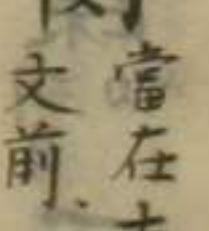 當在
文前